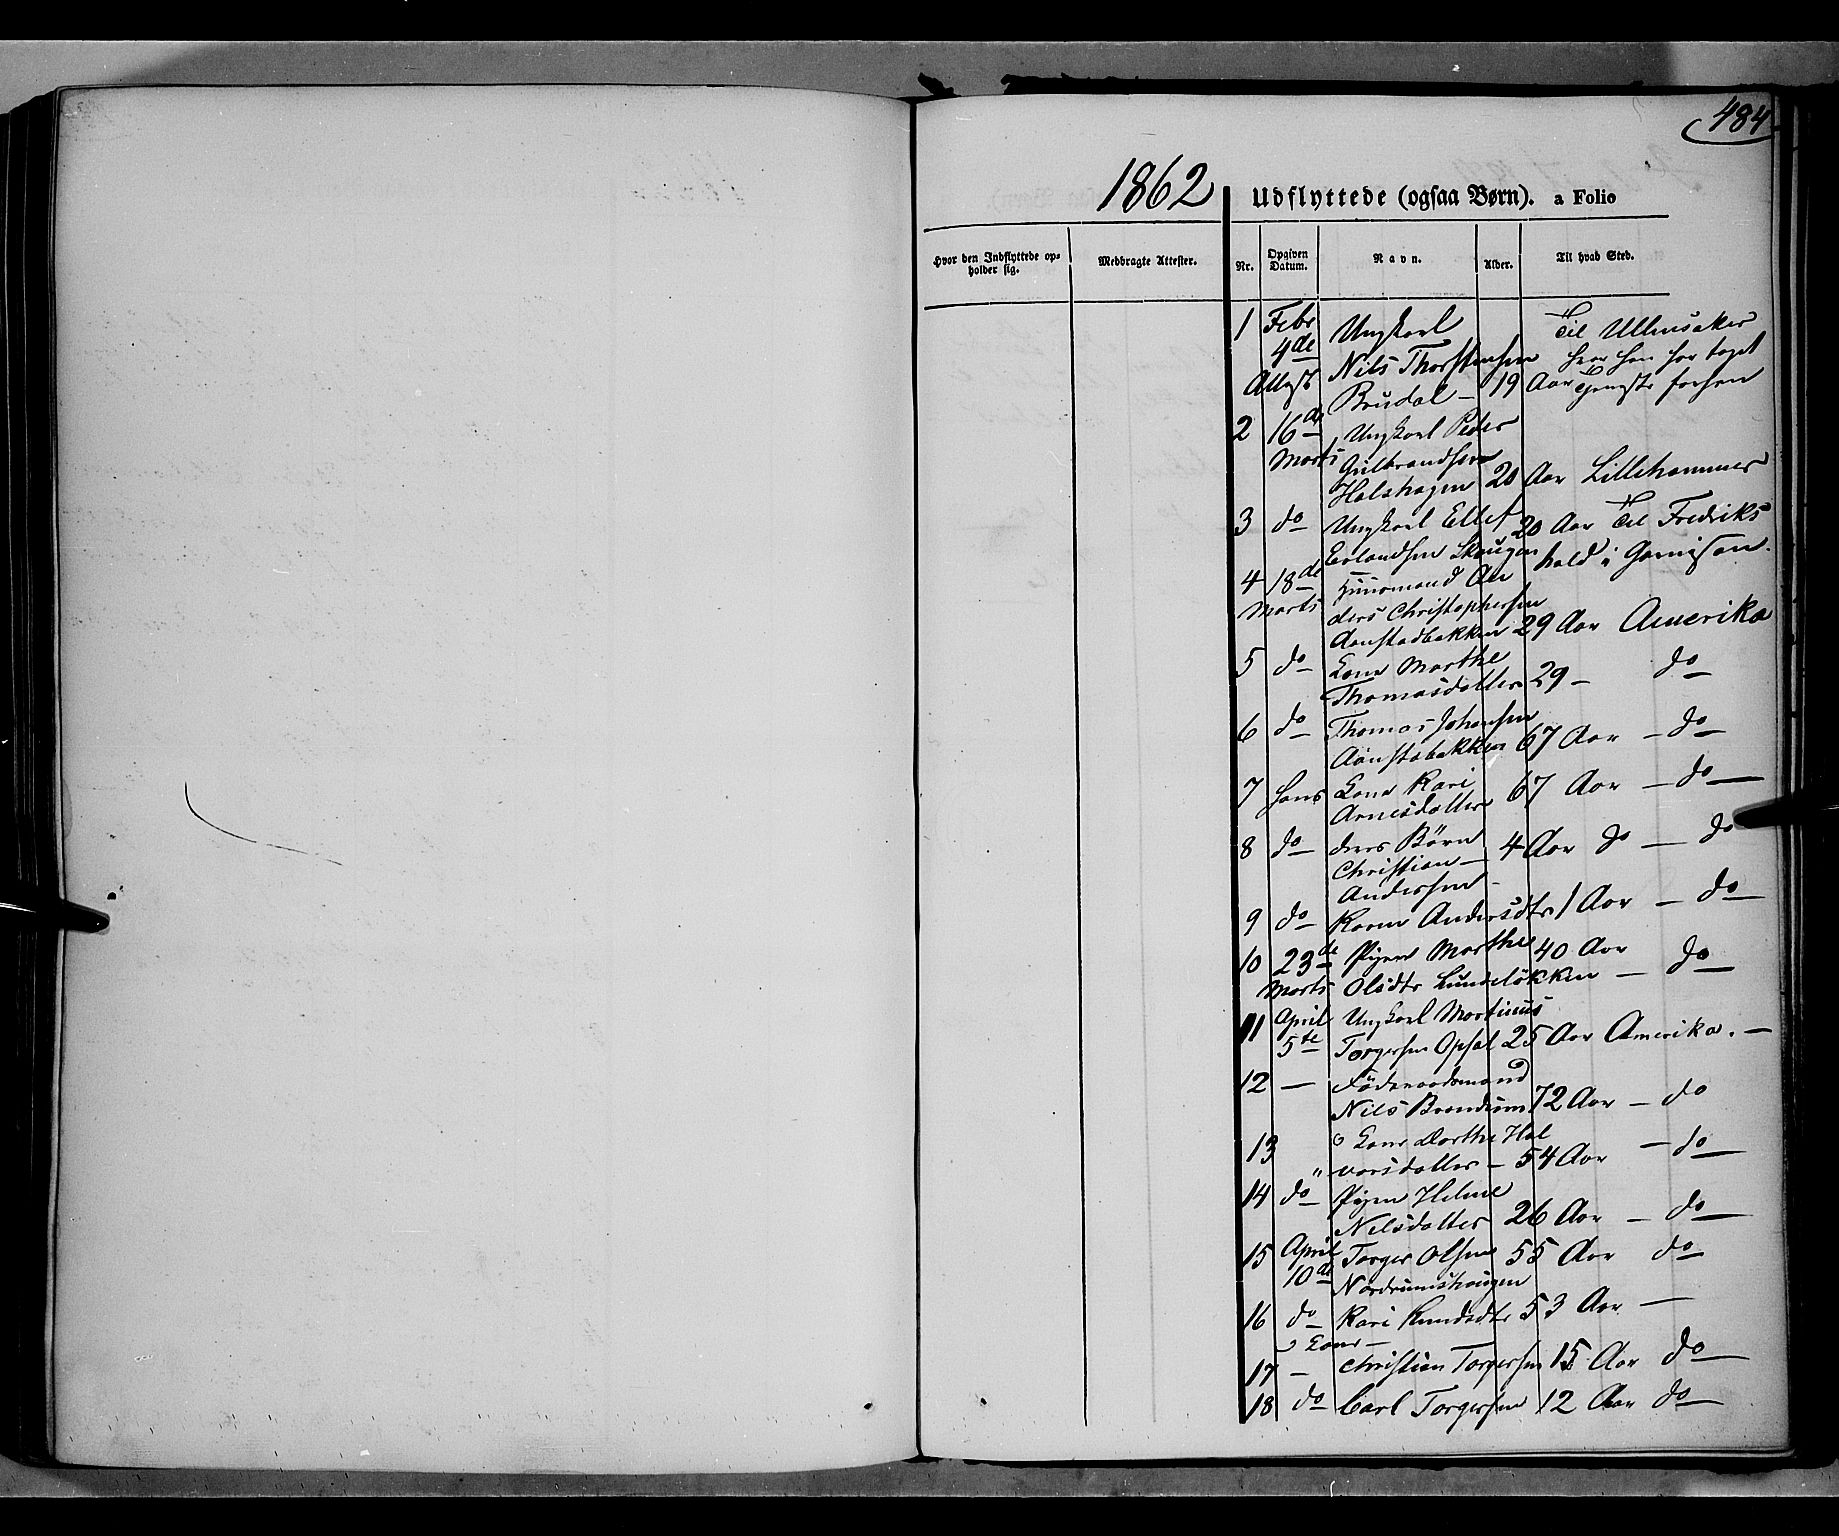 484
1862 Udflyttede (ogsaa Børn). a Folio
Hvor den Indflyttede opholder sig. Medbragte Attester. Nr. Opgiven Datum. Navn. Alder. Til hvad Sted.
1 Febr Ungkarl Til Ullensaker
4de Nils Thorstensen hvor han har taget
Attest Brudal – 19 Aar Tjeneste forhen
2 16de Ungkarl Peder
Marts Gulbrandsen
Halshagen 20 Aar Lillehammer
3 do Ungkarl Ellef 20 Aar Til Fredriks
Erlandsen Skaugen hald i Garnison.
4 18de Huusmand An
Marts ders Christophersen
Aanstadbakken 29 Aar Amerika
5 do Kone Marthe
Thomasdatter 29 – do
6 do Thomas Johansen
Aanstabakken 67 Aar – do
7 hans Kone Kari
Arnesdatter 67 Aar – do –
8 do deres Børn 4 Aar do – do
Christian –
Andersen –
9 do Karen Andersdtr 1 Aar – do
10 23de Pigen Marthe 40 Aar
Marts Olsdtr Lundeløkken – do
11 April Ungkarl Martinus
5te Torgersen Opsal 25 Aar Amerika. –
12 – Föderaadsmand
Nils Brandrum 72 Aar – do
13 Kone Dorthe Hal
" vorsdatter – 54 Aar – do
14 do Pigen Helene
Nilsdatter 26 Aar – do
15 April Torger Olsen 55 Aar do
10de Nordrumshaugen
16 do Kari Knudsdtr 53 Aar –
Kone –
17 – Christian Torgersen 15 Aar do
18 do Carl Torgersen 12 Aar do